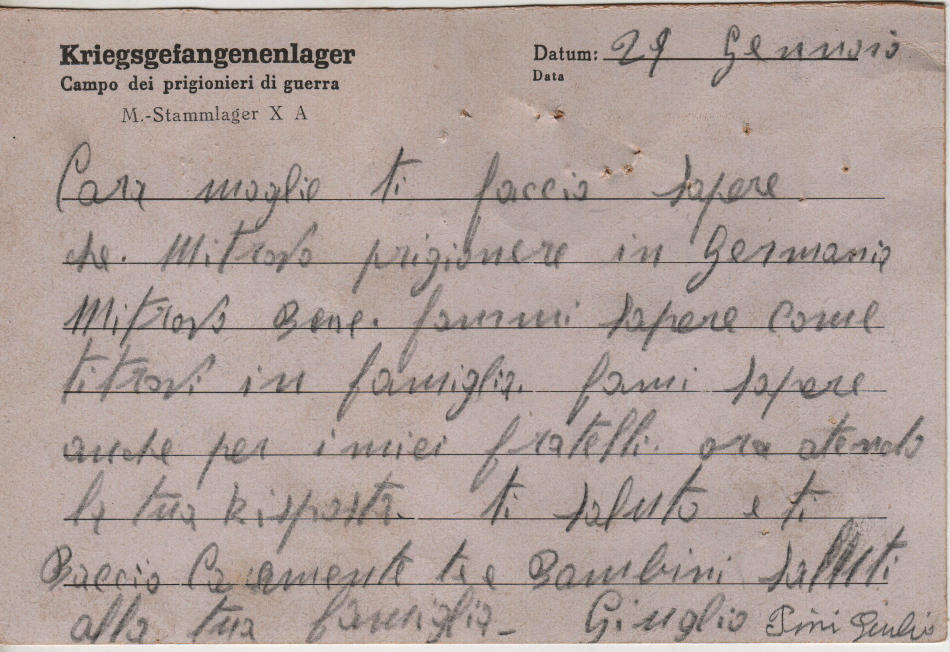 Kriegsgefangenenlager
Campo dei prigionieri di guerra
M.-Stammlager X A
Datum: 29 Gennaio
Data
Cara moglie ti faccio sapere
che. Mitrovo prigionere in Germania
Mitrovo Bene. fammi sapere Come
titrovi in famiglia. fami sapere
anche per i miei fratelli. ora atendo
la tua Risposta. ti saluto e ti
Baccio Caramente te e Bambini saluti
alla tua famiglia - Giuglio Pini Giulio